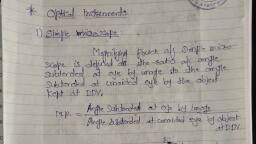 * Optical Instruments
1) Simple microscope
Magnifying Power of Simple micro-
scope is defined as the ratio of angle
subtended at eye by image to the angle
subtended at unaided eye by the object
kept at DDV.
M.P. = Angle Subtended at eye by image
Angle Subtended at unaided eye by object
at DDV